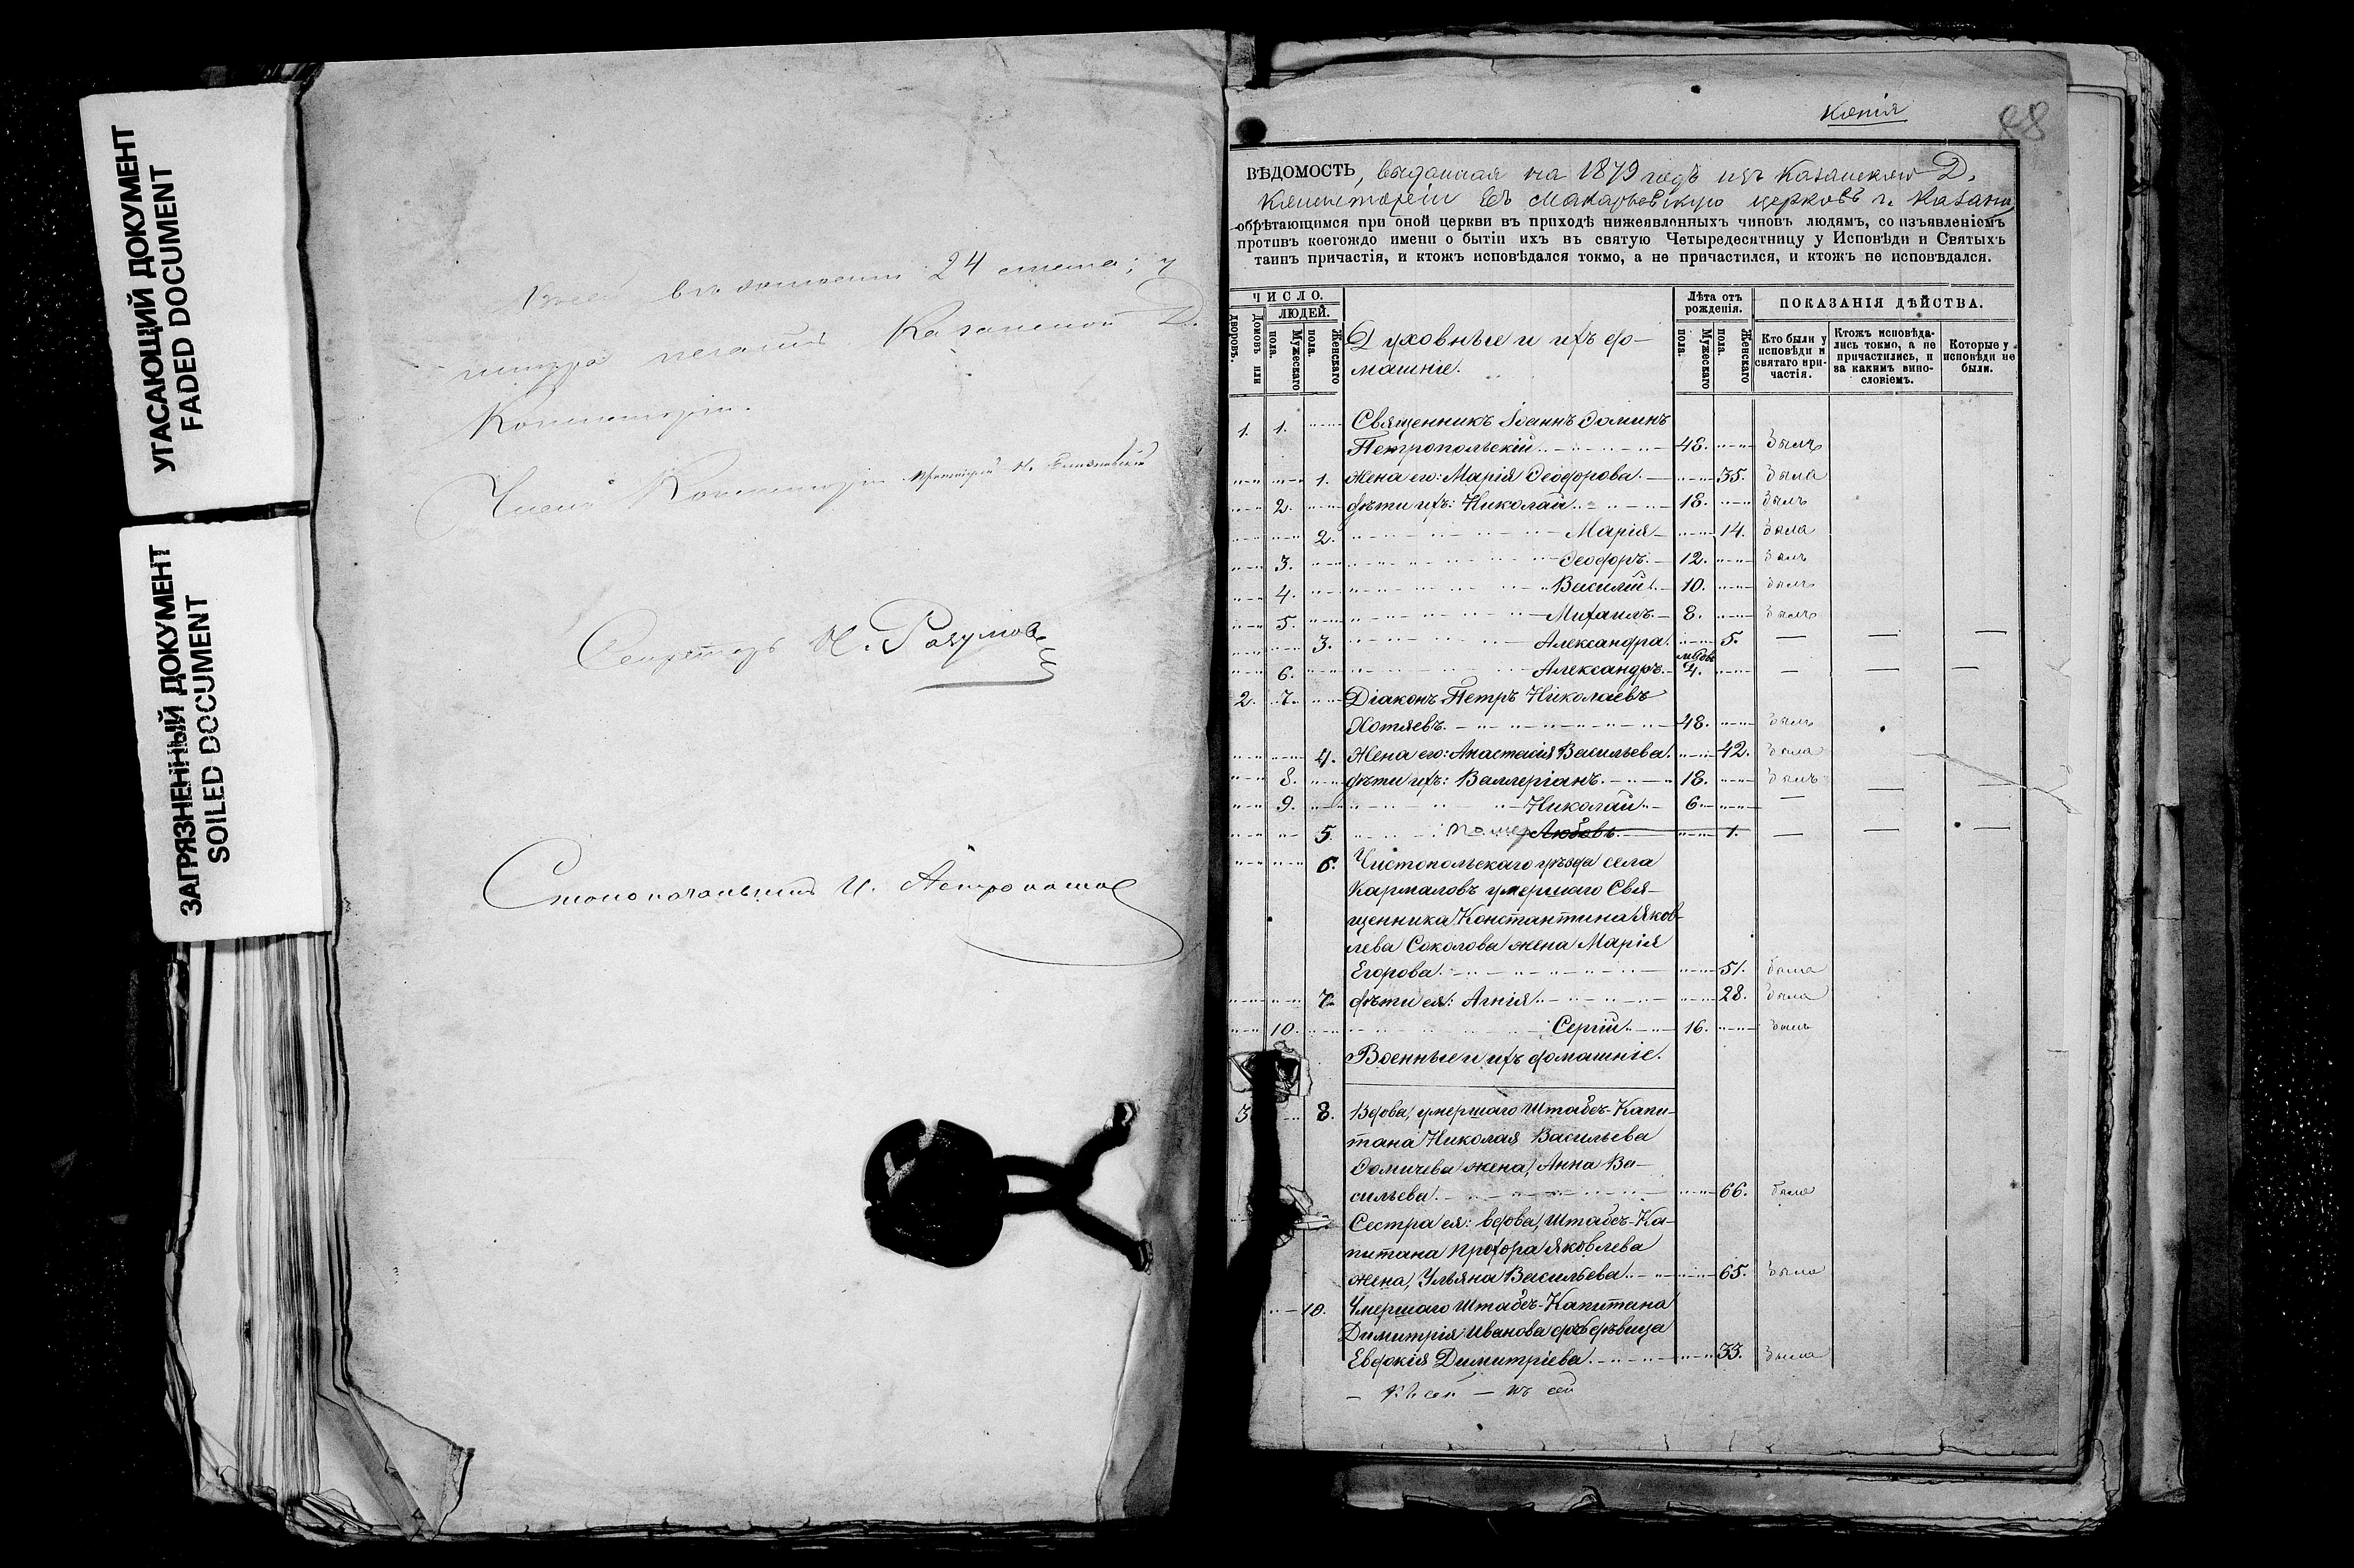 УГАСАЮЩИЙ ДОКУМЕНТ
FADED DOCUMENT
ЗАГРЯЗНЕННЫЙ ДОКУМЕНТ
SOILED DOCUMENT
24 листа; у
печатию Казанской Д.
Консисторіи.
Членъ Консисторіи Протоіерей
Секретарь Н. Разумовъ
Столоначальникъ И.
Копія
ВѢДОМОСТЬ, выданная на 1879 годъ изъ Казанской Д.
Консисторіи въ Макарьевскую церковь г. Казани
обрѣтающимся при оной церкви въ приходѣ нижеявленныхъ чиновъ людямъ, со изъявленіемъ
противъ коегождо имени о бытіи ихъ въ святую Четыредесятницу у Исповѣди и Святыхъ
таинъ причастія, и ктожъ исповѣдался токмо, а не причастился, и ктожъ не исповѣдался.
ЧИСЛО.
Домовъ или дворовъ.
ЛЮДЕЙ.
Мужескаго пола.
Женскаго пола.
Духовные и ихъ до-
машніе.
Лѣта отъ рожденія.
Мужескаго пола.
Женскаго пола.
ПОКАЗАНІЯ ДѢЙСТВА.
Кто были у исповѣди и святаго причастія.
Ктожъ исповѣда-
лись токмо, а не
причастились, и
за какимъ вино-
словіемъ.
Которые у
исповѣди не
были.
1. 1. Священникъ Іоаннъ Ѳоминъ
Петропольскій 48. былъ
1. Жена его: Марія Ѳеодорова. 35. была
2. дѣти ихъ: Николай 18. былъ
2. Марія 14. была
3. Ѳеодоръ. 12. былъ
4. Василій. 10. былъ
5. Михаилъ. 8. былъ
3. Александра. 5. — — —
6. Александръ. 4. — — —
2. 7. Діаконъ Петръ Николаевъ
Хотяевъ. 48. былъ
4. Жена его: Анастасія Васильева. 42. была
8. дѣти ихъ: Валлеріанъ. 18. былъ
9. Николай 6. — — —
5. Любовь. 1. — — —
6. Чистопольскаго уѣзда села
Кармаловъ умершаго Свя-
щенника Константина Яков-
лева Соколова жена Марія
Егорова. 51. была
7. дѣти ея: Агнія 28. была
10. Сергій 16. былъ
Военные и ихъ домашніе.
3 8. Вдова, умершаго Штабсъ-Капи-
тана Николая Васильева
Ѳомичева жена, Анна Ва-
сильева. 66. была
Сестра ея: вдова, Штабсъ-Ка-
питана Прохора Яковлева
жена, Ульяна Васильева. 65. была
10. Умершаго Штабсъ-Капитана
Димитрія Иванова дочь дѣвица
Евдокія Димитріева. 33. была